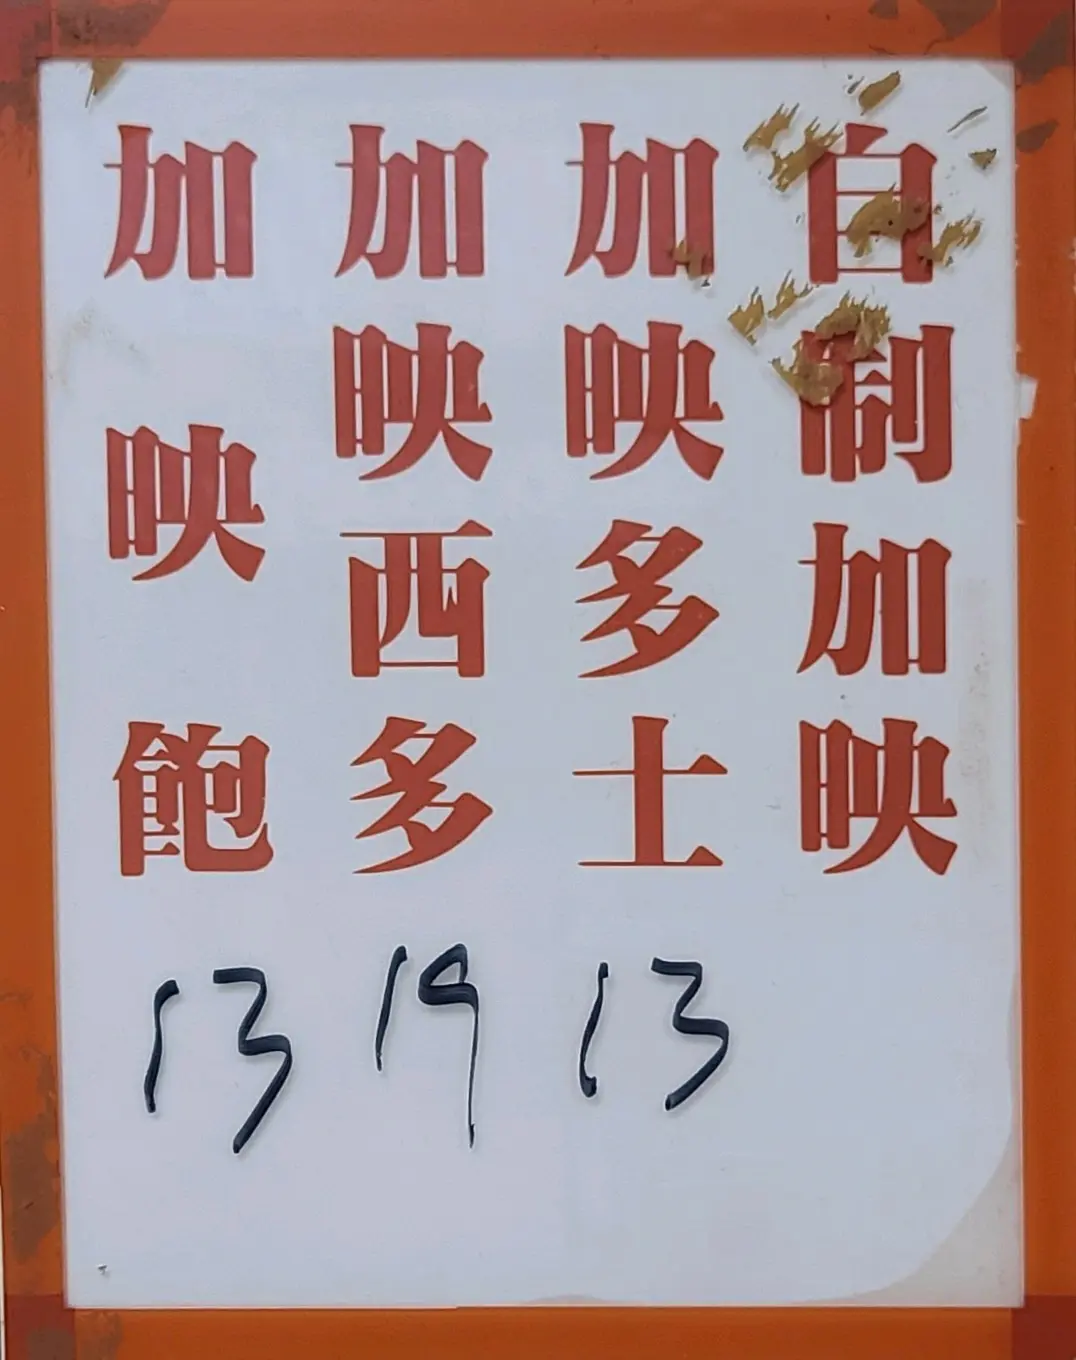 自制加映
加映多士 13
加映西多 19
加映飽 13